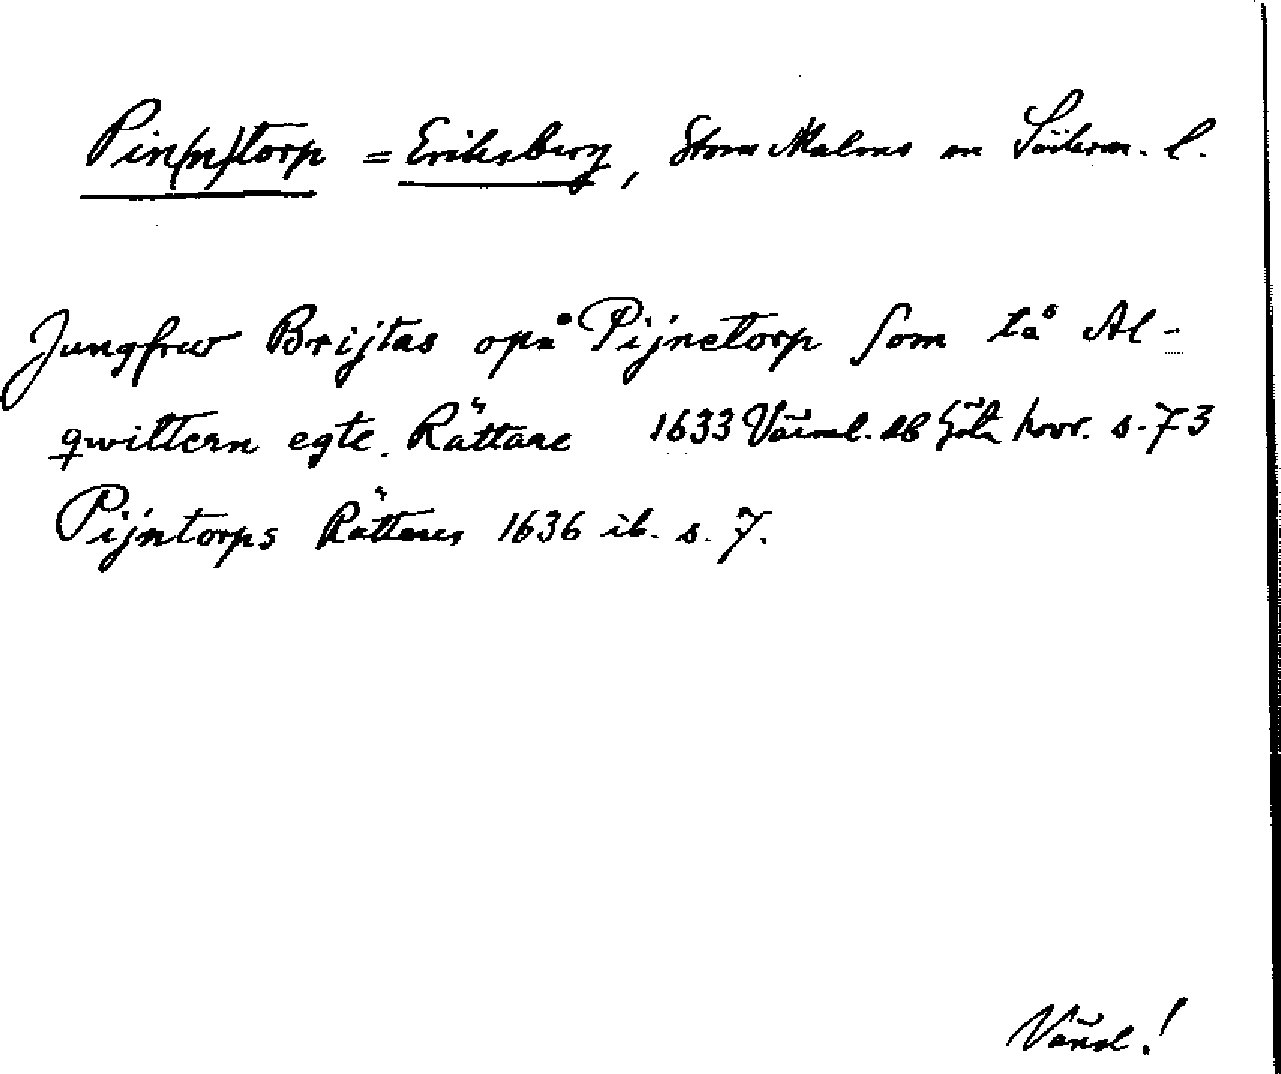 Pin(n)torp = Eriksberg, Stora Malms sn Söderm. l.
Jungfrw Brijtas opå Pijnetorp som tå Al-
qwittern egte. Rättare 1633 Värml. db Göta hovr. s. 73
Pijntorps Rättares 1636 ib. s. 7.
Vänd!